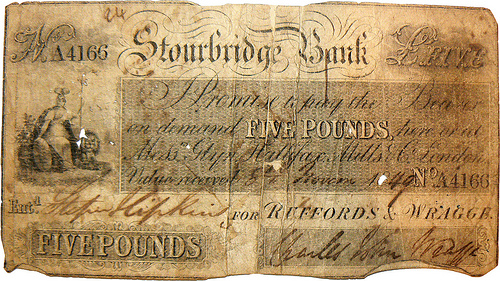 24
No A4166 Stourbridge Bank £FIVE
I Promise to pay the Bearer
on demand FIVE POUNDS, here or at
Messrs Glyn, Hallifax, Mills & Co London
Value received Novem 18 No A4166
Entd FOR RUFFORDS & WRAGGE
FIVE POUNDS Charles John Wragge